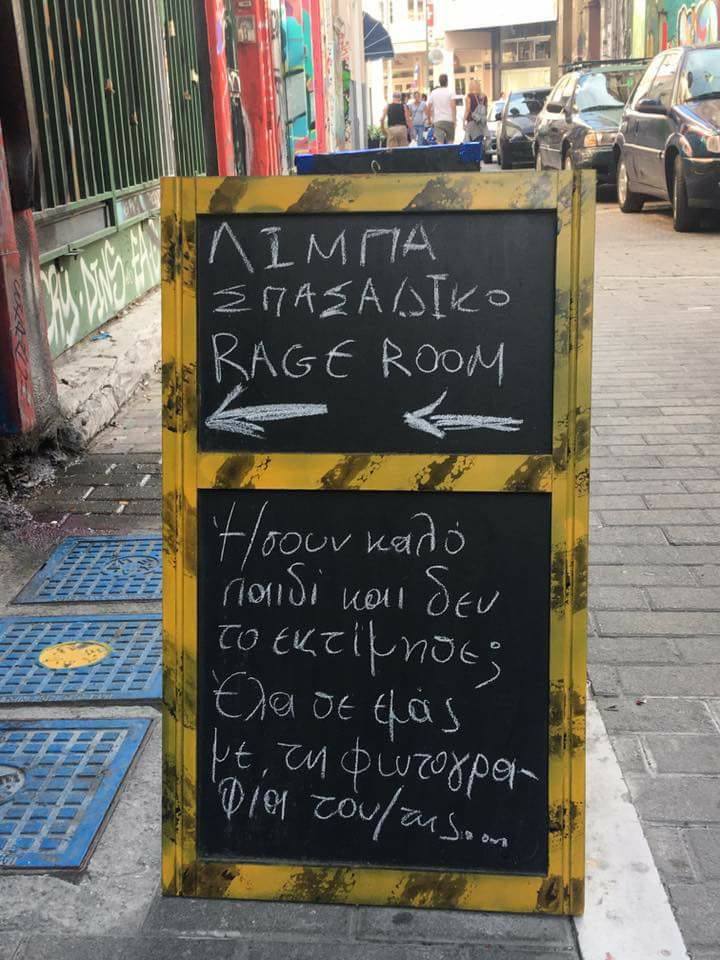 ΛΙΜΠΑ
ΣΠΑΣΑΔΙΚΟ
RAGE ROOM
Ήσουν καλό
παιδί και δεν
το εκτίμησε;
Έλα σε εμάς
με τη φωτογρα-
φία του/της...